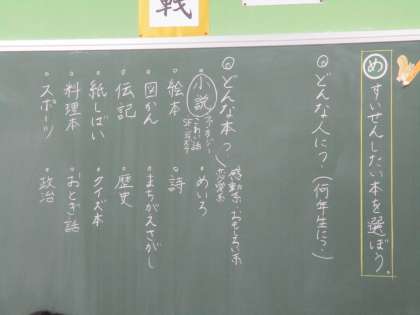 戦
め すいせんしたい本を選ぼう。
Q どんな人に?(何年生に?)
Q どんな本?
感動系 おもしろい系
恋愛系
・小説
ファンタジー
こわい話
SF ミステリー
・めいろ
・絵本
・詩
・図かん
・まちがえさがし
・伝記
・歴史
・紙しばい
・クイズ本
・料理本
・おとぎ話
・スポーツ
・政治